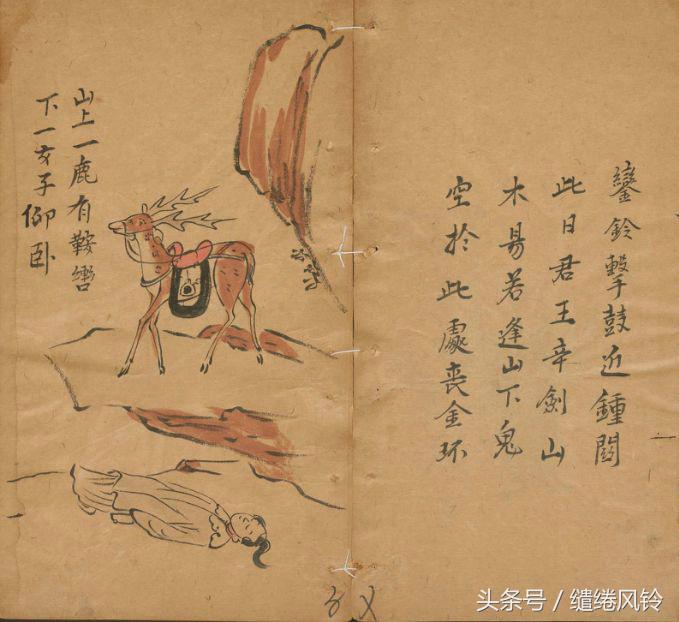 鑾鈴擊鼓近鍾關
此日君王辛劍山
木易若逢山下鬼
空於此處喪金环
山上一鹿有鞍轡
下一女子仰卧
头条号 / 缱绻风铃